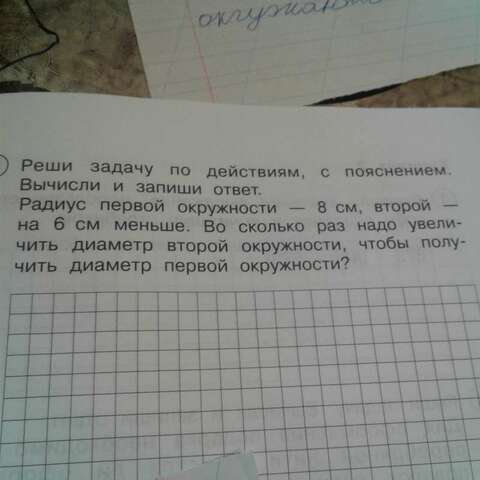 окружать
Реши задачу по действиям, с пояснением.
Вычисли и запиши ответ.
Радиус первой окружности — 8 см, второй —
на 6 см меньше. Во сколько раз надо увели-
чить диаметр второй окружности, чтобы полу-
чить диаметр первой окружности?